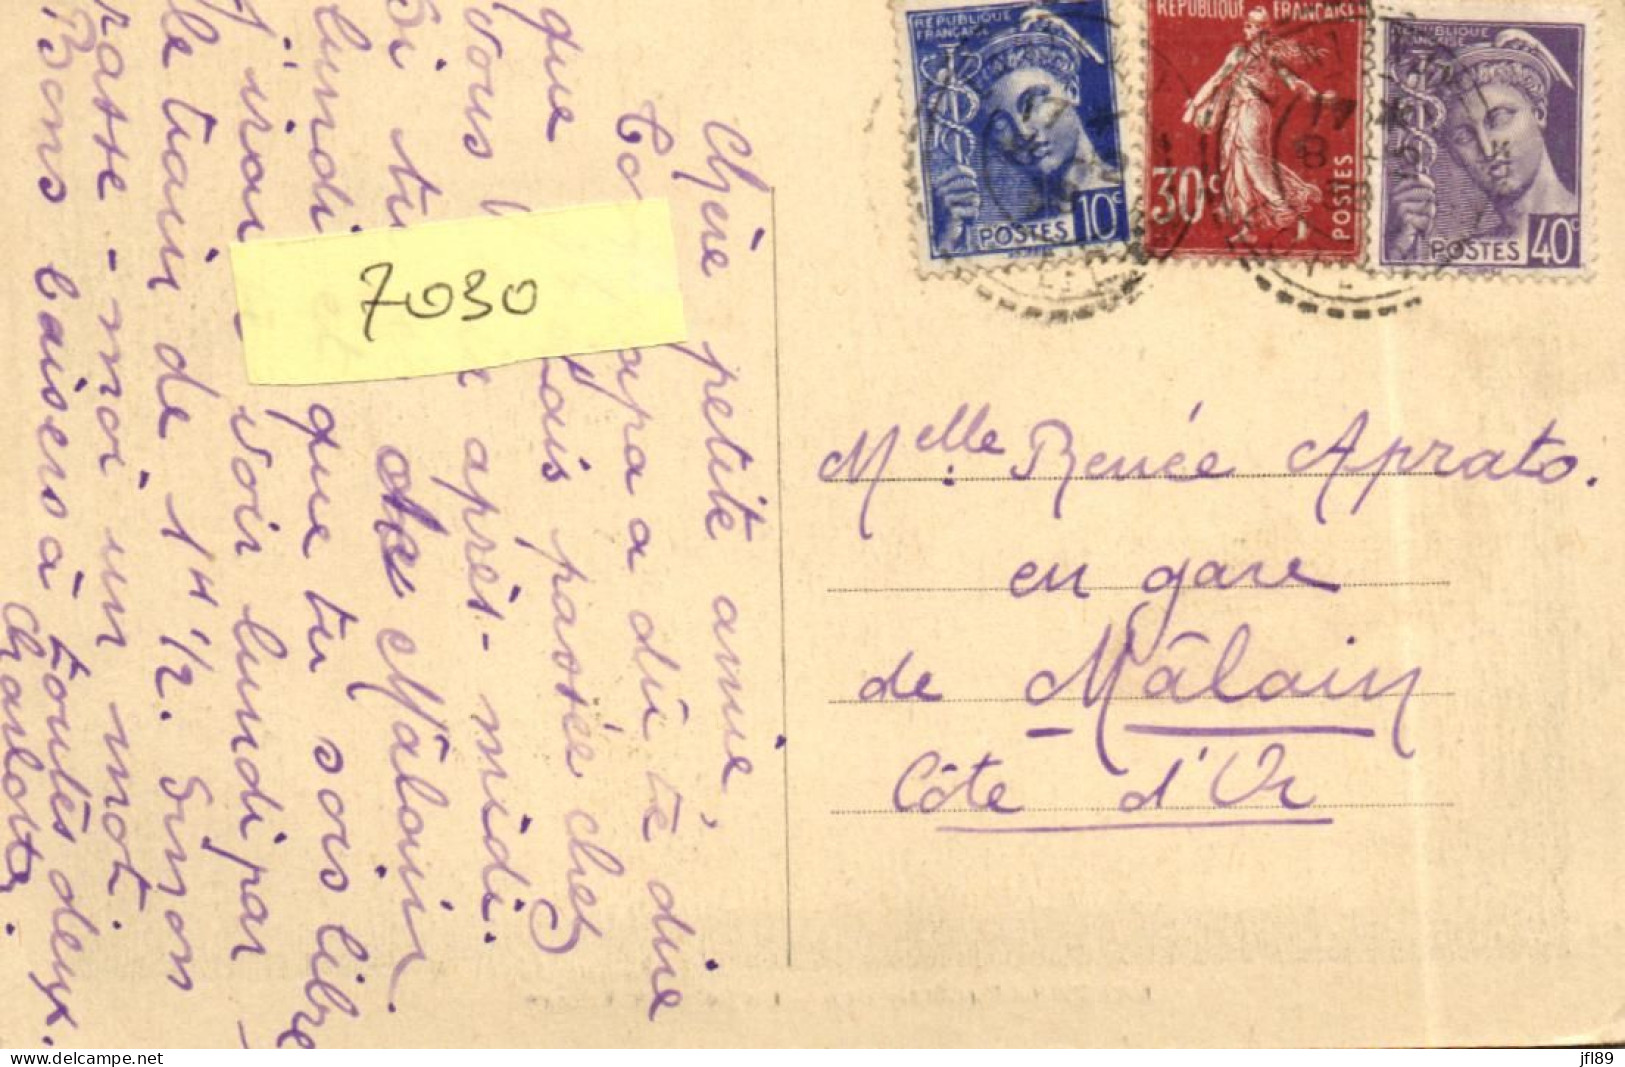 Chère petite amie,
papa a dû te dire
que passée chez
vous après-midi.
Si tu de Mâlain.
lundi que tu sois libre
J'irai voir lundi par
le train de 1H 1/2. Sinon
- moi un mot.
Bons baisers à toutes deux.
Charlotte.
7030
RÉPUBLIQUE
FRANÇAISE
POSTES 10c
RÉPUBLIQUE FRANÇAISE
30c
POSTES
RÉPUBLIQUE
FRANÇAISE
POSTES 40c
Melle Renée Aprato.
en gare
de Mâlain
Côte d'Or
jfl89